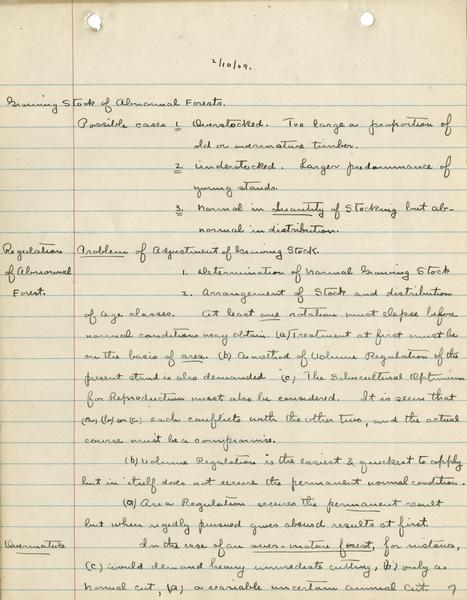 2/10/09.
Growing Stock of Abnormal Forests.
Possible cases 1 Overstocked. Too large a proportion of
old or overmature timber.
2 Understocked. Larger predominance of
young stands.
3. Normal in Quantity of Stocking but ab-
normal in distribution.
Regulation Problem of Adjustment of Growing Stock.
of Abnormal 1. Determination of Normal Growing Stock
Forest. 2. Arrangement of Stock and distribution
of Age classes. At least one rotation must elapse before
normal conditions may obtain. (a) Treatment at first must be
on the basis of area. (b) A method of Volume Regulation of the
present stand is also demanded (c) The Silvicultural Optimum
for Reproduction must also be considered. It is seen that
(a), (b) or (c) each conflicts with the other two, and the actual
course must be a compromise.
(b) Volume Regulation is the easiest & quickest to apply
but in itself does not secure the permanent normal condition.
(a) Area Regulation secures the permanent result
but when rigidly pursued gives absurd results at first.
Overmature In the case of an over-mature forest, for instance,
(c) would demand heavy immediate cutting, (b) only a
normal cut, (a) a variable uncertain annual cut